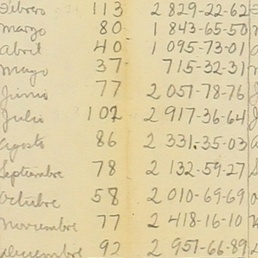 Febrero 113 2 829-22-62
marzo 80 1 843-65-50
abril 40 1 095-73-01
Mayo 37 715-32-31
Junio 77 2 057-78-76
Julio 102 2 917-36-64
agosto 86 2 331-35-03
Septembre 78 2 132-59-27
Octubre 58 2 010-69-69
Noviembre 77 2 418-16-10
92 2 957-66-89